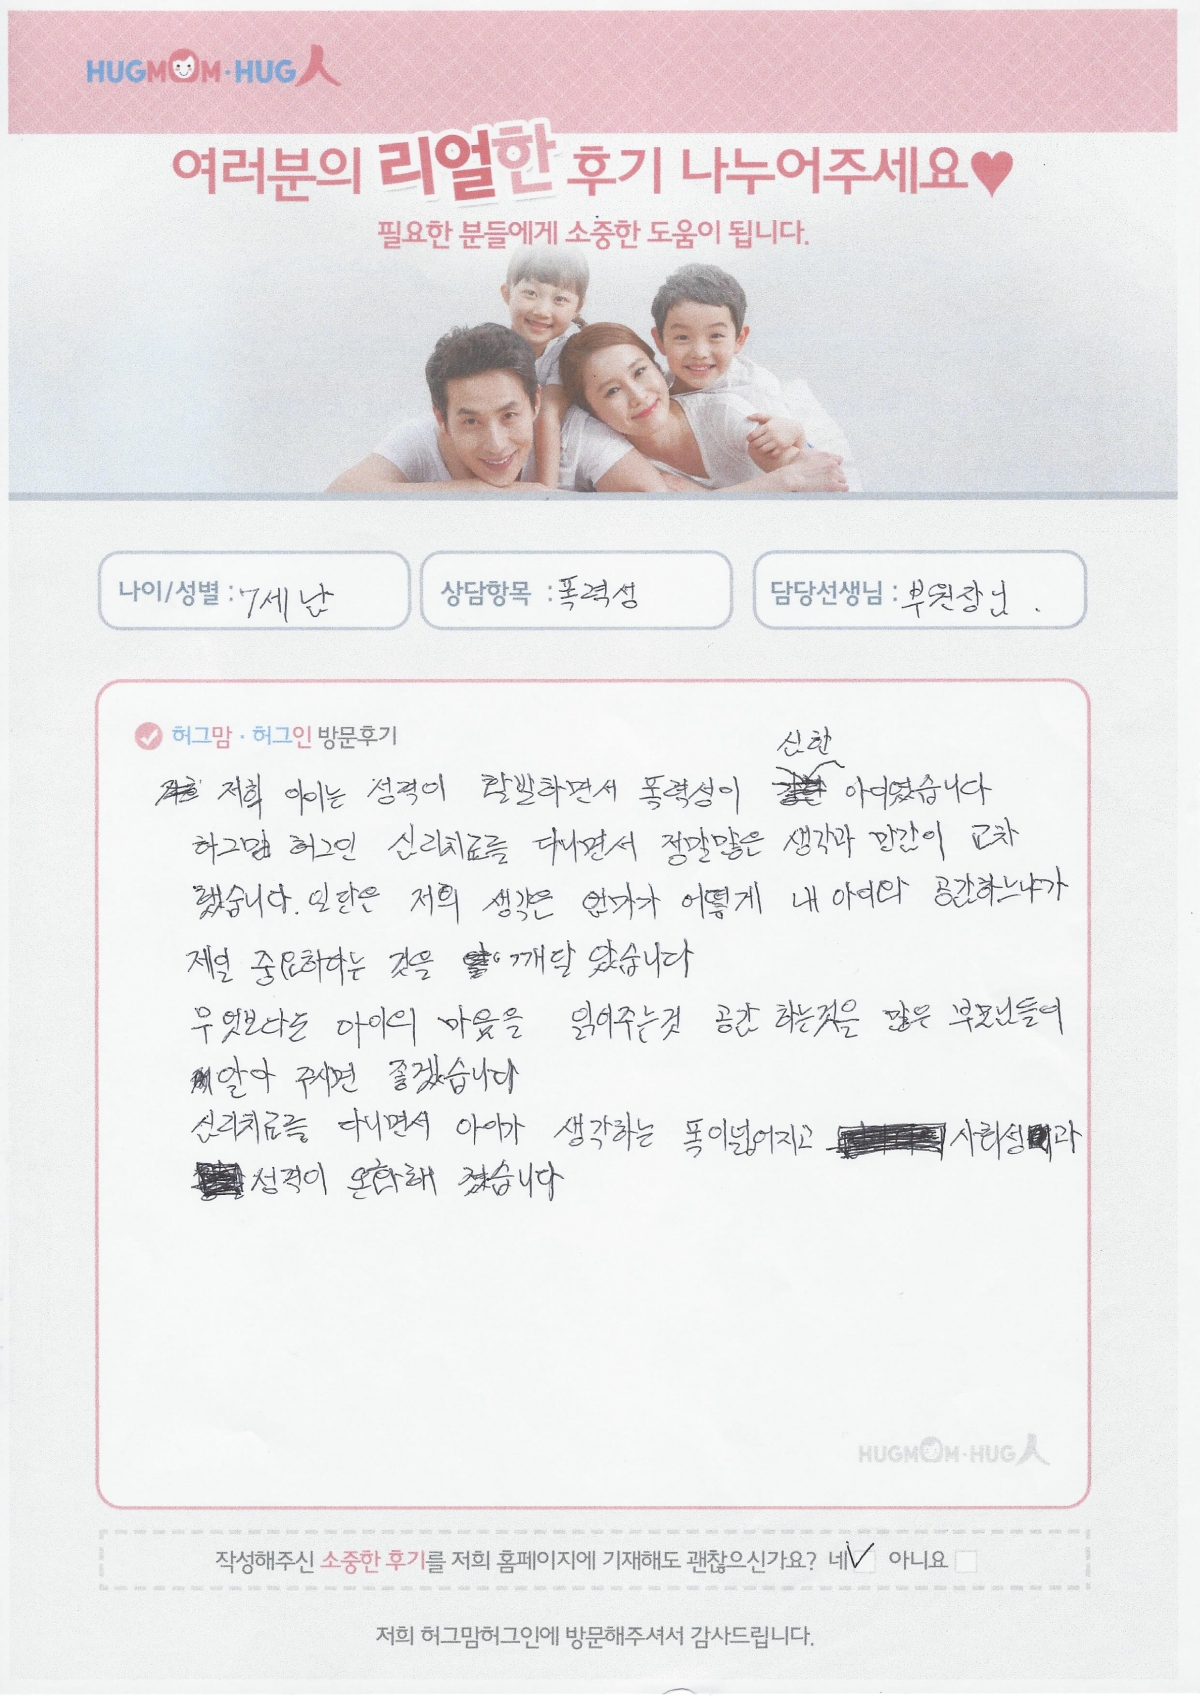 HUGMOM·HUG人
여러분의 리얼한 후기 나누어주세요♥
필요한 분들에게 소중한 도움이 됩니다.
나이/성별 : 7세 남
상담항목 : 폭력성
담당선생님 : 부원장님 .
허그맘·허그인 방문후기
신한
저희 아이는 성격이 활발하면서 폭력성이 아이였습니다
허그맘 허그인 심리치료를 다니면서 정말많은 생각과 만감이 교차
했습니다. 일단은 저희 생각은 엄마가 어떻게 내 아이와 공감하느냐가
제일 중요하다는 것을 깨달 았습니다
무엇보다는 아이의 마음을 읽어주는것 공감 하는것을 많은 부모님들이
알아 주시면 좋겠습니다
심리치료를 다니면서 아이가 생각하는 폭이넓어지고 사회성과
성격이 온화해 졌습니다
HUGMOM·HUG人
작성해주신 소중한 후기를 저희 홈페이지에 기재해도 괜찮으신가요? 네 아니요
저희 허그맘허그인에 방문해주셔서 감사드립니다.